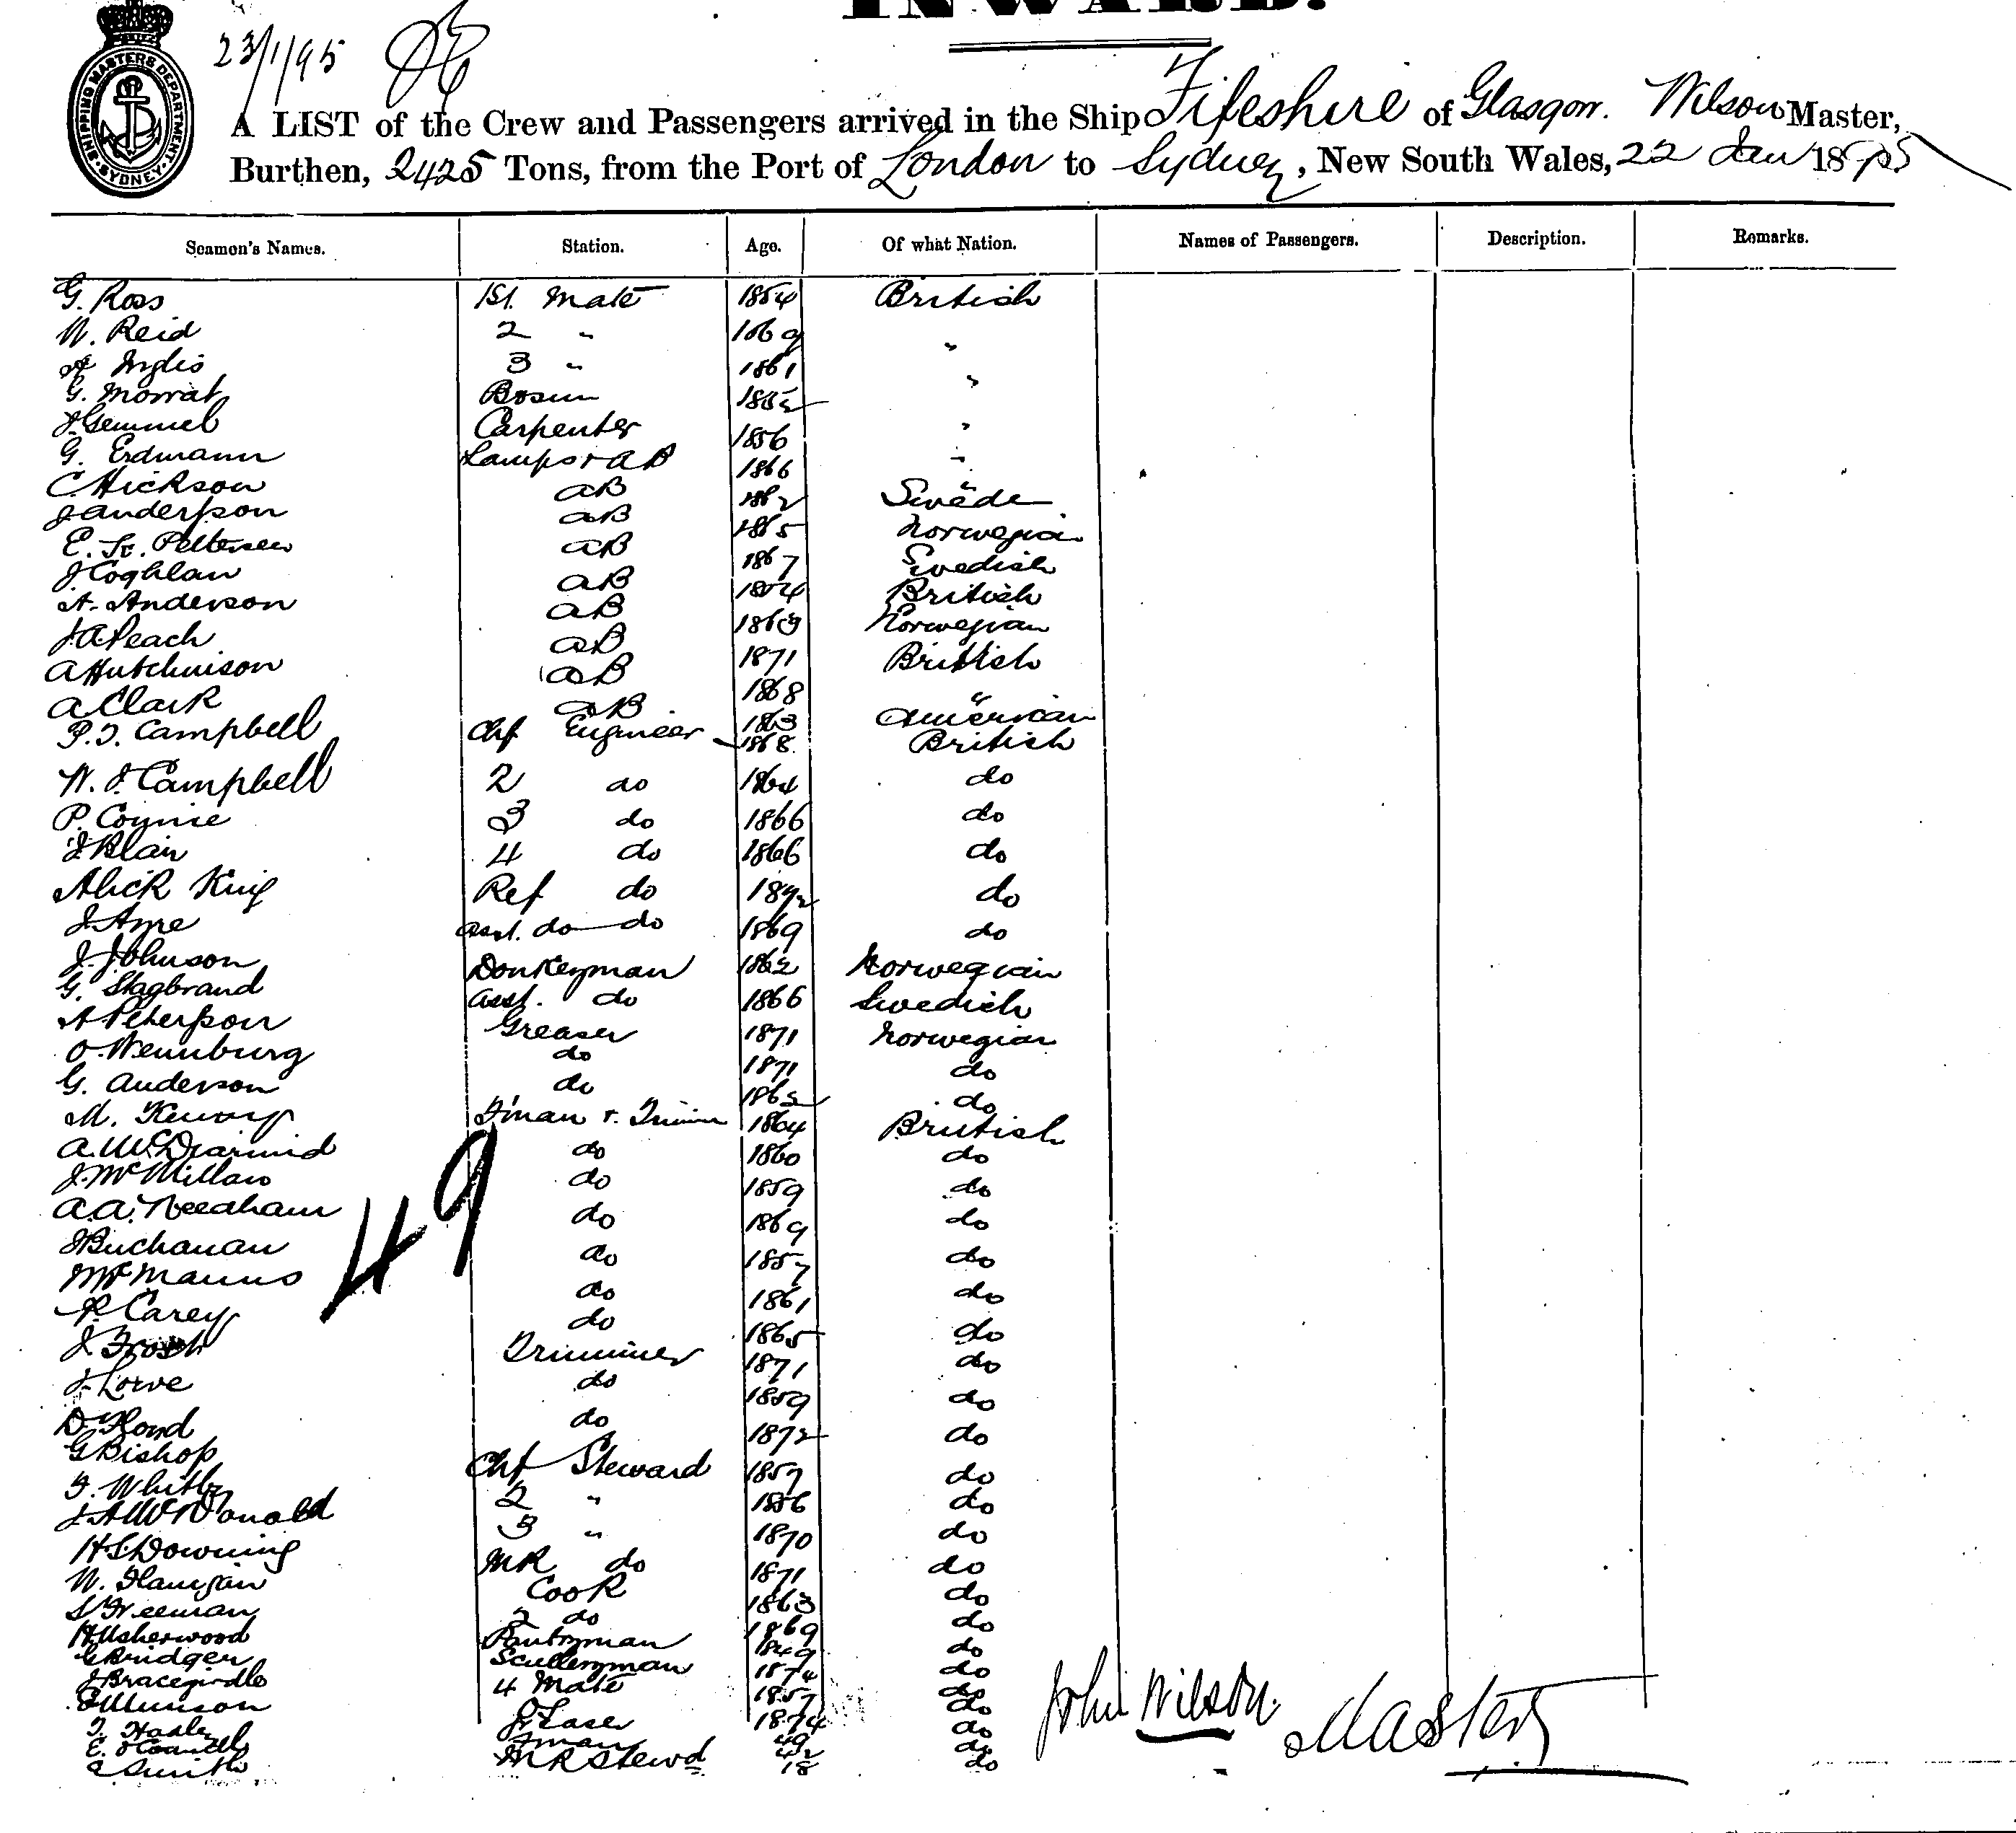 INWARD.
23/1/95
SHIPPING MASTERS DEPARTMENT SYDNEY
A LIST of the Crew and Passengers arrived in the Ship Fifeshire of Glasgow. Wilson Master,
Burthen, 2425 Tons, from the Port of London to Sydney, New South Wales, 22 Jan 1895
Seamen's Names. Station. Age. Of what Nation. Names of Passengers. Description. Remarks.
G. Ross 1st. Mate 1854 British
W. Reid 2 " 1869 "
A Inglis 3 " 1861 "
G. Mowat Bosun 1852 "
J. Gemmel Carpenter 1856 "
G. Erdmann Lamps & AB 1866 "
C. Hickson AB 1862 Swede
J Anderson AB 1865 Norwegian
E. Pettersen AB 1867 Swedish
J Coghlan AB 1854 British
A. Anderson AB 1863 Norwegian
J. A. Peach AB 1871 British
A Hutchinson AB 1868 "
A Clark AB 1863 American
P. J. Campbell Chf Engineer 1868 British
W. J. Campbell 2 do 1864 do
P. Coynie 3 do 1866 do
J Blair 4 do 1866 do
Alick King Ref do 1872 do
J. Ayre asst. do do 1869 do
J. Johnson Donkeyman 1862 Norwegian
G. Stagbrand asst. do 1866 Swedish
A Peterson Greaser 1871 Norwegian
O. Wennburg do 1871 do
G. Anderson do 1862 do
M. F'man & Trimr 1864 British
A. McDiarmid do 1860 do
J. McMillan do 1859 do
A. A. Needham do 1869 do
J Buchanan do 1857 do
McManus do 1861 do
P. Carey do 1865 do
J. Frost Trimmer 1871 do
J. Lowe do 1859 do
D. do 1872 do
G Bishop Chf Steward 1857 do
F. Whitby 2 " 1856 do
J. A McDonald 3 " 1870 do
H. S. Downing MR do 1871 do
W. Flanigan Cook 1863 do
S Freeman 2 do 1869 do
H Usherwood Pantryman 1849 do
G Bridger Sculleryman 1874 do
J Bracegirdle 4 Mate 1857 do
E Munson 1874 do
T. F'man 49 do
E. O'Connell MR Stewd 42 do
C Smith 18 do
49
John Wilson. Master